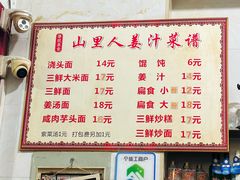 山里人姜汁菜谱
浇头面 14元 馄饨 6元
三鲜大米面 17元 姜汁 14元
三鲜面 17元 扁食 小 12元
姜汤面 18元 扁食 大 18元
咸肉芋头面 18元 三鲜炒糕 17元
紫菜汤1元 打包费另加1元 三鲜炒面 17元
个体工商户